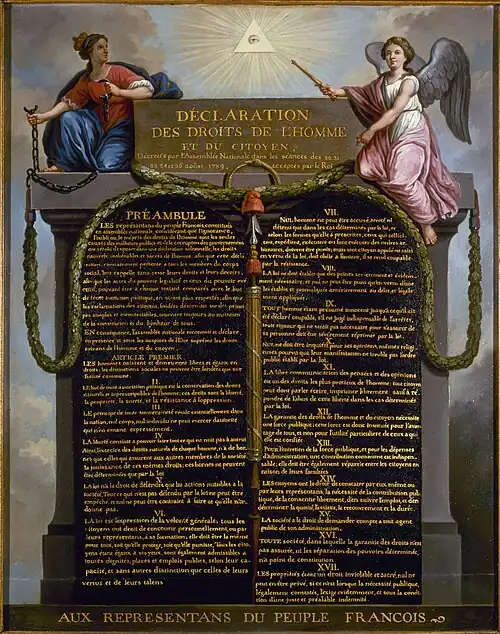 DÉCLARATION
DES DROITS DE L'HOMME
ET DU CITOYEN,
Décretés par l'Assemblée Nationale dans les séances des 20, 21
23, 24 et 26 août 1789, acceptés par le Roi
PRÉAMBULE
LES représentans du peuple Francois, constitués
en assemblée nationale, considérant que l'ignorance,
l'oubli ou le mépris des droits de l'homme sont les seules
causes des malheurs publics et de la corruption des gouvernemens
ont résolu d'exposer dans une déclaration solemnelle, les droits
naturels, inaliénables et sacrés de l'homme, afin que cette décla-
ration, constamment présente a tous les membres du corps
social, leur rappelle sans cesse leurs droits et leurs devoirs;
afin que les actes du pouvoir législatif et ceux du pouvoir exé-
cutif, pouvant être a chaque instant comparés avec le but
de toute institution politique, en soient plus respectés; afin que
les réclamations des citoyens, fondées désormais sur des princi-
pes simples et incontestables, tournent toujours au maintien
de la constitution et du bonheur de tous.
EN conséquence, l'assemblée nationale reconnoit et déclare,
en presence et sous les auspices de l'Etre suprême les droits
suivans de l'homme et du citoyen.
ARTICLE PREMIER
LES hommes naissent et demeurent libres et égaux en
droits; les distinctions sociales ne peuvent être fondées que sur
l'utilité commune.
II.
LE but de toute association politique est la conservation des droits
naturels et imprescriptibles de l'homme; ces droits sont la liberté,
la propriété, la sureté, et la résistance à l'oppression.
III
LE principe de toute souveraineté reside essentiellement dans
la nation, nul corps, nul individu ne peut exercer d'autorité
qui n'en émane expressement.
IV
LA liberté consiste a pouvoir faire tout ce qui ne nuit pas à autrui
Ainsi, l'exercice des droits naturels de chaque homme, n'a de bor-
nes que celles qui assurent aux autres membres de la société
la jouissance de ces mêmes droits; ces bornes ne peuvent
être déterminées que par la loi
V.
LA loi n'a le droit de défendre que les actions nuisibles à la
société. Tout ce qui n'est pas défendu par la loi ne peut être
empêché, et nul ne peut être contraint à faire ce qu'elle n'or-
donne pas.
VI.
LA loi est l'expression de la volonté générale; tous les
citoyens ont droit de concourir personnellement, ou par
leurs représentans, à sa formation; elle doit être la même
pour tous, soit qu'elle protege, soit qu'elle punisse, Tous les cito-
yens étant égaux à ses yeux, sont également admissibles à
toutes dignités, places et emplois publics, selon leur ca-
pacité, et sans autres distinction que celles de leurs
vertus et de leurs talens
VII.
NUL homme ne peut être accusé, arreté ni
détenu que dans les cas déterminés par la loi, et
selon les formes qu'elle à prescrites, ceux qui sollici-
tent, expédient, exécutent ou font exécuter des ordres ar-
bitraires, doivent être punis; mais tout citoyen appelé ou saisi
en vertu de la loi, doit obéir a l'instant, il se rend coupable
par la résistance.
VIII.
LA loi ne doit établir que des peines strictement et évidem-
ment nécessaire, et nul ne peut être puni qu'en vertu d'une
loi établie et promulguée antérieurement au délit, et légale-
ment appliquée.
IX.
TOUT homme étant présumé innocent jusqu'à ce qu'il ait
été déclaré coupable, s'il est jugé indispensable de l'arrêter,
toute rigueur qui ne serait pas nécessaire pour s'assurer de
sa personne doit être sévèrement réprimée par la loi.
X.
NUL ne doit être inquiété pour ses opinions, mêmes religi-
euses pourvu que leur manifestation ne trouble pas l'ordre
public établi par la loi.
XI.
LA libre communication des pensées et des opinions
est un des droits les plus precieux de l'homme; tout citoyen
peut donc parler, écrire, imprimer librement, sauf à ré-
pondre de l'abus de cette liberté dans les cas déterminés
par la loi.
XII.
LA garantie des droits de l'homme et du citoyen nécessite
une force publique; cette force est donc instituée pour l'avan-
tage de tous, et non pour l'utilité particuliere de ceux a qui
elle est confiée.
XIII.
POUR l'entretien de la force publique, et pour les dépenses
d'administration, une contribution commune est indispen-
sable; elle doit être également répartie entre les citoyens en
raison de leurs facultées
XIV.
LES citoyens ont le droit de constater par eux même ou
par leurs représentans, la nécessité de la contribution pub-
lique, de la consentir librement, d'en suivre l'emploi, et d'en
déterminer la quotité, l'assiette, le recouvrement et la durée.
XV.
LA société a le droit de demander compte a tout agent
public de son administration.
XVI.
TOUTE société, dans laquelle la garantie des droits n'est
pas assurée, ni les séparation des pouvoirs déterminée,
n'a point de constitution
XVII.
LES propriétés étant un droit inviolable et sacré, nul ne
peut en être privé, si ce n'est lorsque la nécessité publique,
légalement constatée, l'exige evidemment, et sous la condi-
tion d'une juste et préalable indemnité.
AUX REPRESENTANS DU PEUPLE FRANCOIS